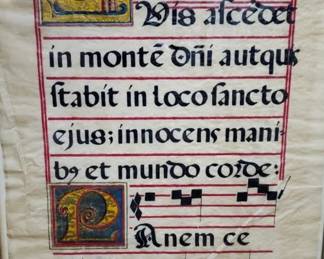 Quis ascedet
in montē Dñi autqus
stabit in loco sancto
ejus; innocens mani-
bꝰ et mundo corde:
PAnem ce